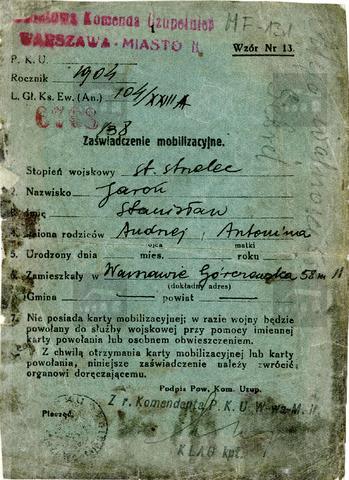 Powiatowa Komenda Uzupełnień
WARSZAWA - MIASTO II
MF-121
Wzór Nr 13.
P. K. U.
Rocznik 1904
L. Gł. Ks. Ew. (An.) 104/XXIII A
/38
Zaświadczenie mobilizacyjne.
Stopień wojskowy st. strzelec
2. Nazwisko Jaroń
3. Imię Stanisław
4. Imiona rodziców Andrzej, Antonina
ojca matki
5. Urodzony dnia mies. roku
6. Zamieszkały w Warszawie Górczewska 58 m 11
(dokładny adres)
Gmina powiat
7. Nie posiada karty mobilizacyjnej; w razie wojny będzie
powołany do służby wojskowej przy pomocy imiennej
karty powołania lub osobnem obwieszczeniem.
Z chwilą otrzymania karty mobilizacyjnej lub karty
powołania, niniejsze zaświadczenie należy zwrócić
organowi doręczającemu.
Podpis Pow. Kom. Uzup.
Z r. Komendanta P. K. U. W-wa-M. II
Pieczęć.
KLAG kpt.